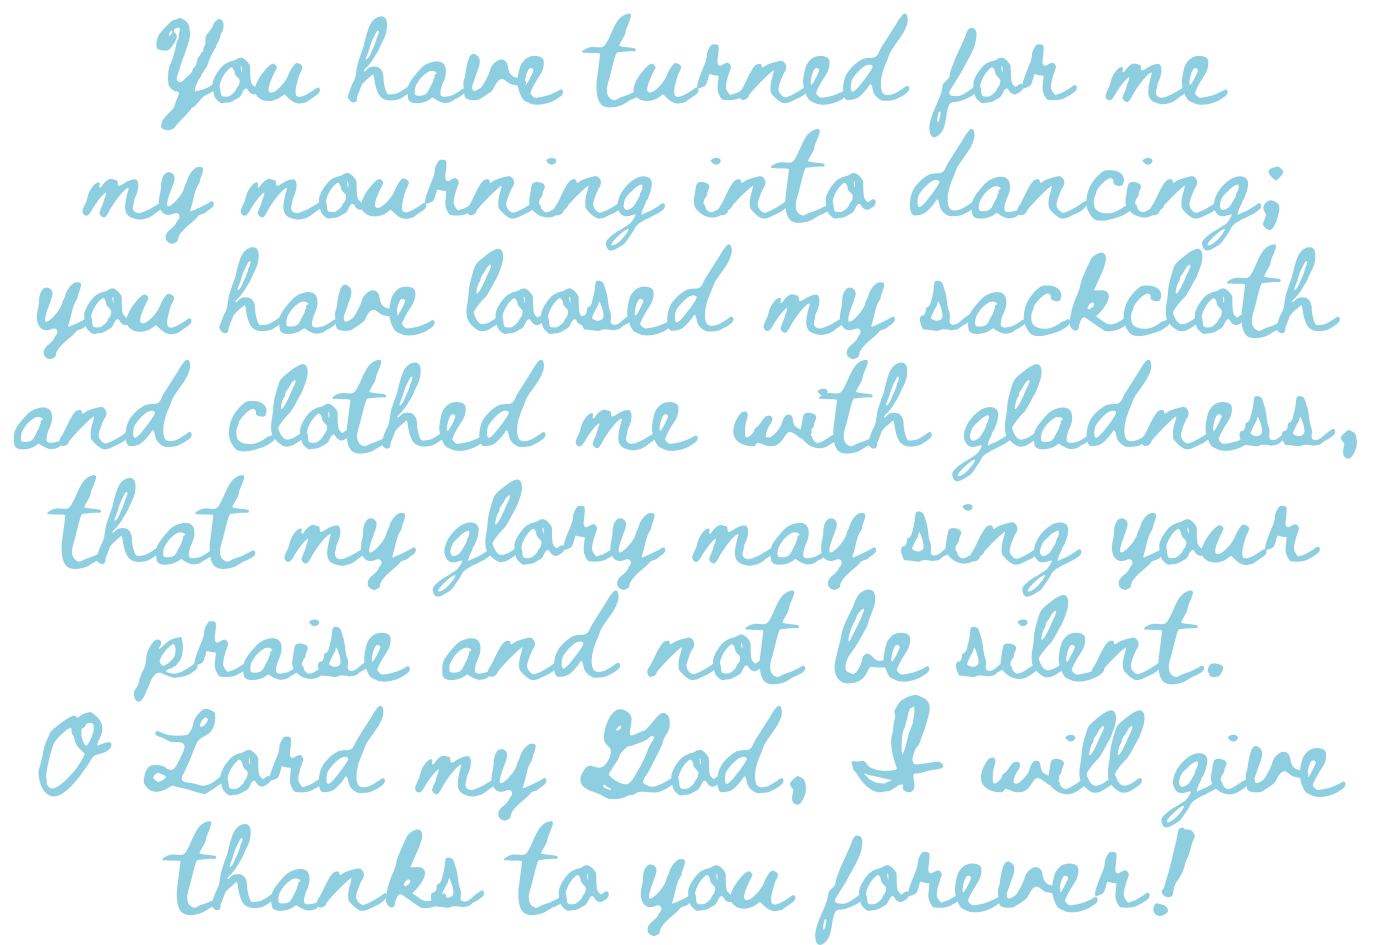 You have turned for me
my mourning into dancing;
you have loosed my sackcloth
and clothed me with gladness,
that my glory may sing your
praise and not be silent.
O Lord my God, I will give
thanks to you forever!